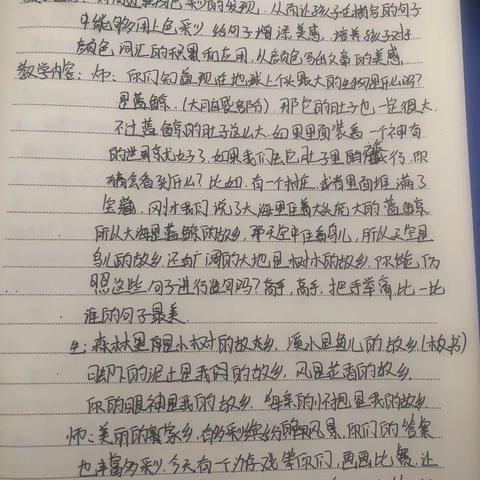 色彩的发现，从而让孩子在描写的句子
中能够用上色彩给句子增添美感，培养孩子对
颜色词汇的积累和应用，从颜色写出文章的美感
教学内容：师：你们知道现在地球上个头最大的生物是什么吗？
是蓝鲸，（大白袋部分）那它的肚子也一定很大
不过蓝鲸的肚子这么大，如果里面装着一个神奇
的世界就好了，如果我们去它肚子里旅行，你
猜会看到什么？比如，有一个村庄，或者里面堆满了
宝藏，刚才我们说了大海里住着大头庞大的蓝鲸
所以大海是蓝鲸的故乡，那天空中住着鸟儿，所以天空是
鸟儿的故乡，还有广阔的大地是树木的故乡，你能仿
照这些句子进行造句吗？高手，高手，把手举高，比一比
谁的句子最美
生：森林里面是小树的故乡，溪水是鱼儿的故乡（板书）
的泥土是我的故乡，风是花香的故乡，
你的眼神是我的故乡，母亲的怀抱是我的故乡
师：美丽的家乡，色彩缤纷的风景，你们的答案
也丰富多彩，今天有一个游戏等你们，画画比赛，让